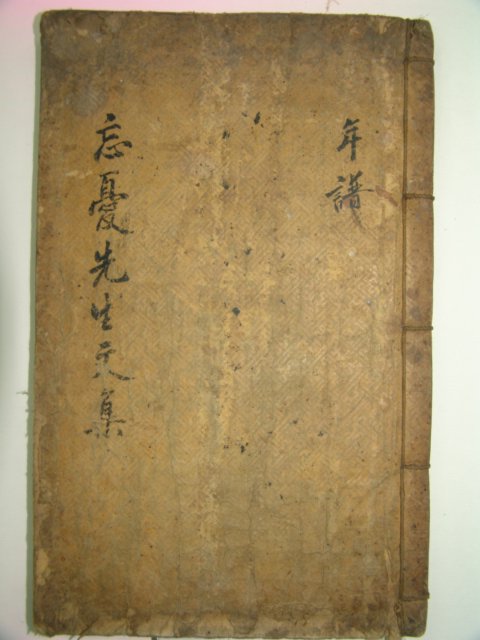 年譜
忘憂先生文集